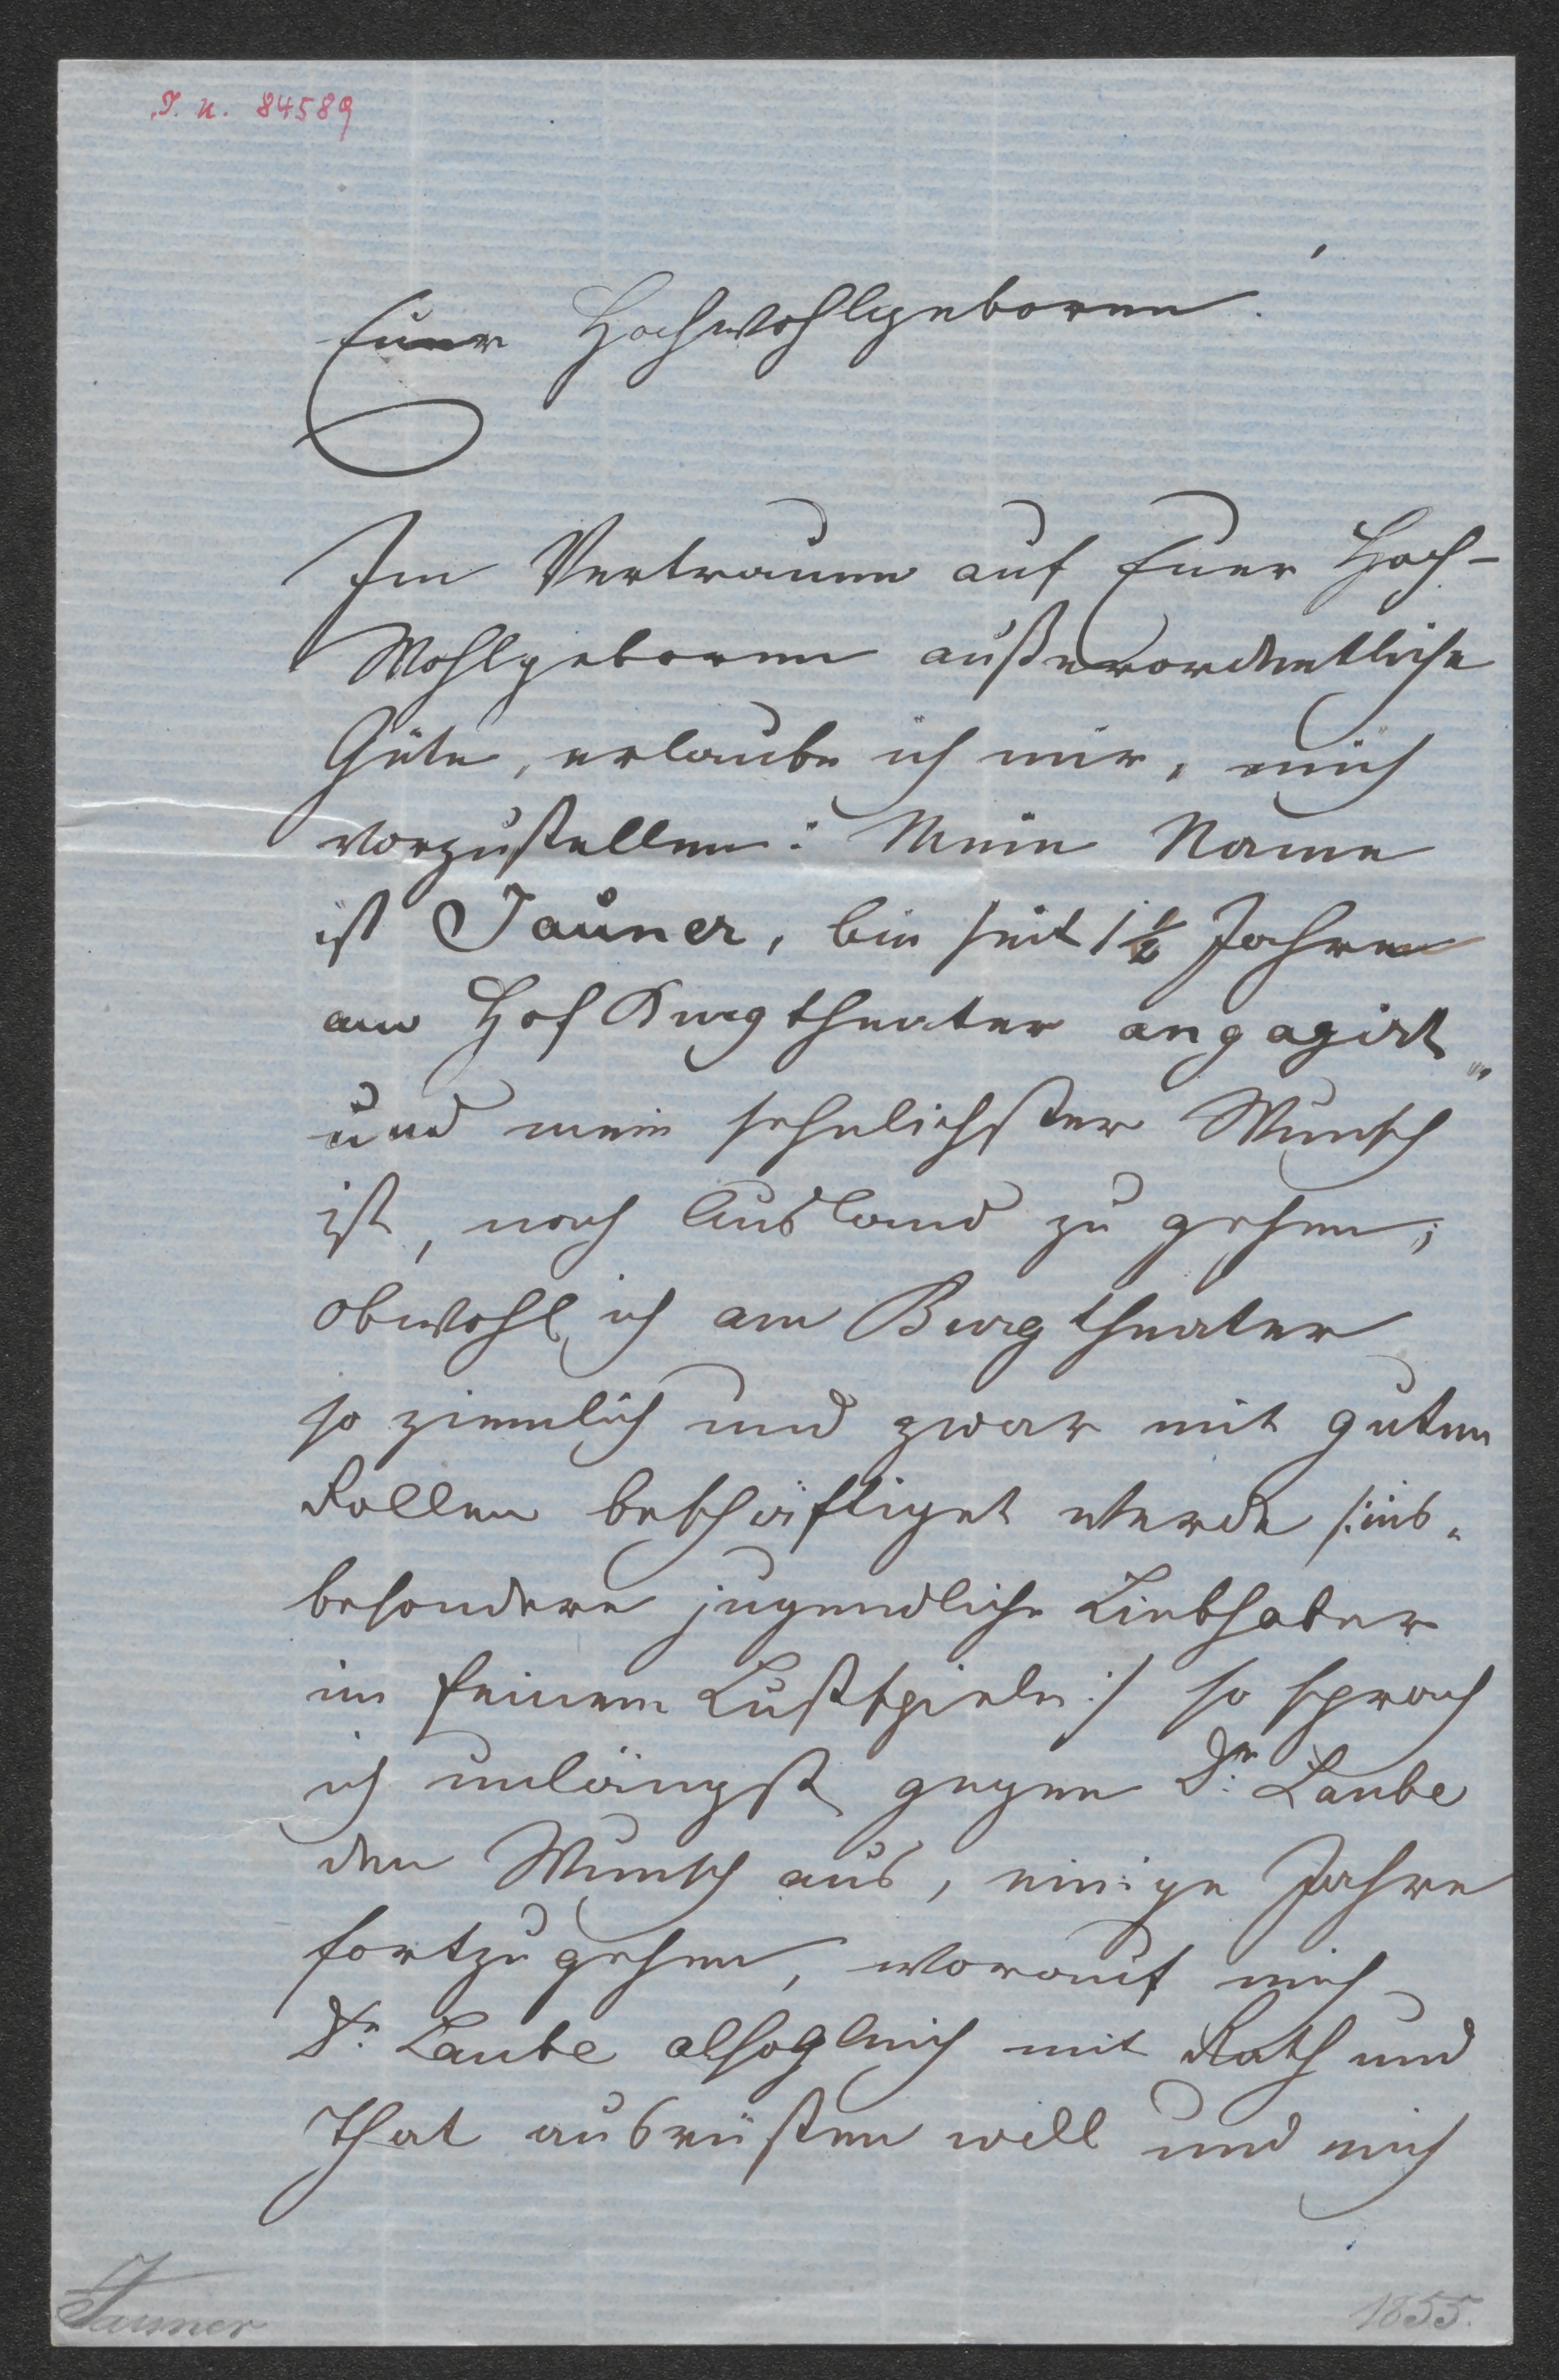 I. N. 84589
Euer Hochwohlgeboren!
Im Vertrauen auf Euer Hoch-
Wohlgeboren außerordentliche
Güte, erlaube ich mir, mich
vorzustellen: Mein Name
ist Jauner, bin seit 1 ½ Jahren
am Hof Burgtheater angagirt
und mein sehnlichster Wunsch
ist, nach Ausland zu gehen;
obwohl ich am Burgtheater
so ziemlich und zwar mit guten
Rollen beschäftiget werde /: ins-
besondere jugendliche Liebhaber
im feinem Lustspiele :/ so sprach
ich unlängst gegen Dr. Laube
den Wunsch aus, einige Jahre
fortzugehen, worauf mich
Dr. Laube alsogleich mit Rath und
That ausrüsten will und mich
Jauner
1855.